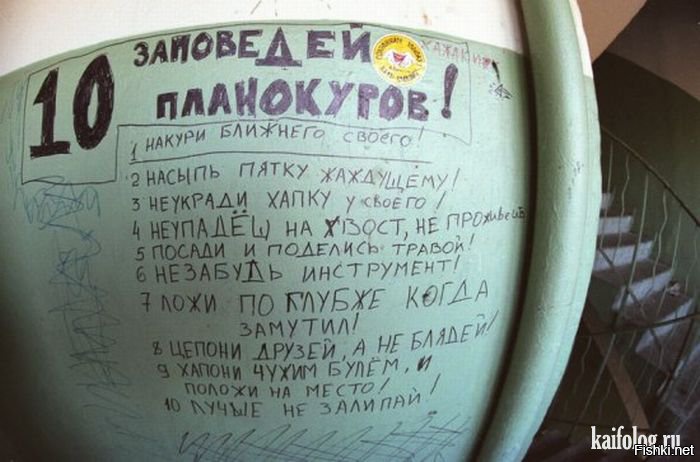 10 ЗАПОВЕДЕЙ
ПЛАНОКУРОВ!
1 НАКУРИ БЛИЖНЕГО СВОЕГО!
2 НАСЫПЬ ПЯТКУ ЖАЖДУЩЕМУ!
3 НЕУКРАДИ ХАПКУ У СВОЕГО!
4 НЕУПАДЁШ НА ХВОСТ, НЕ ПРОЖИВЕШЬ
5 ПОСАДИ И ПОДЕЛИСЬ ТРАВОЙ!
6 НЕЗАБУДЬ ИНСТРУМЕНТ!
7 ЛОЖИ ПО ГЛУБЖЕ КОГДА
ЗАМУТИЛ!
8 ЦЕПОНИ ДРУЗЕЙ, А НЕ БЛЯДЕЙ!
9 ХАПОНИ ЧУЖИМ БУЛЁМ, И
ПОЛОЖИ НА МЕСТО!
10 ЛУЧЫЕ НЕ ЗАЛИПАЙ!
kaifolog.ru
Fishki.net